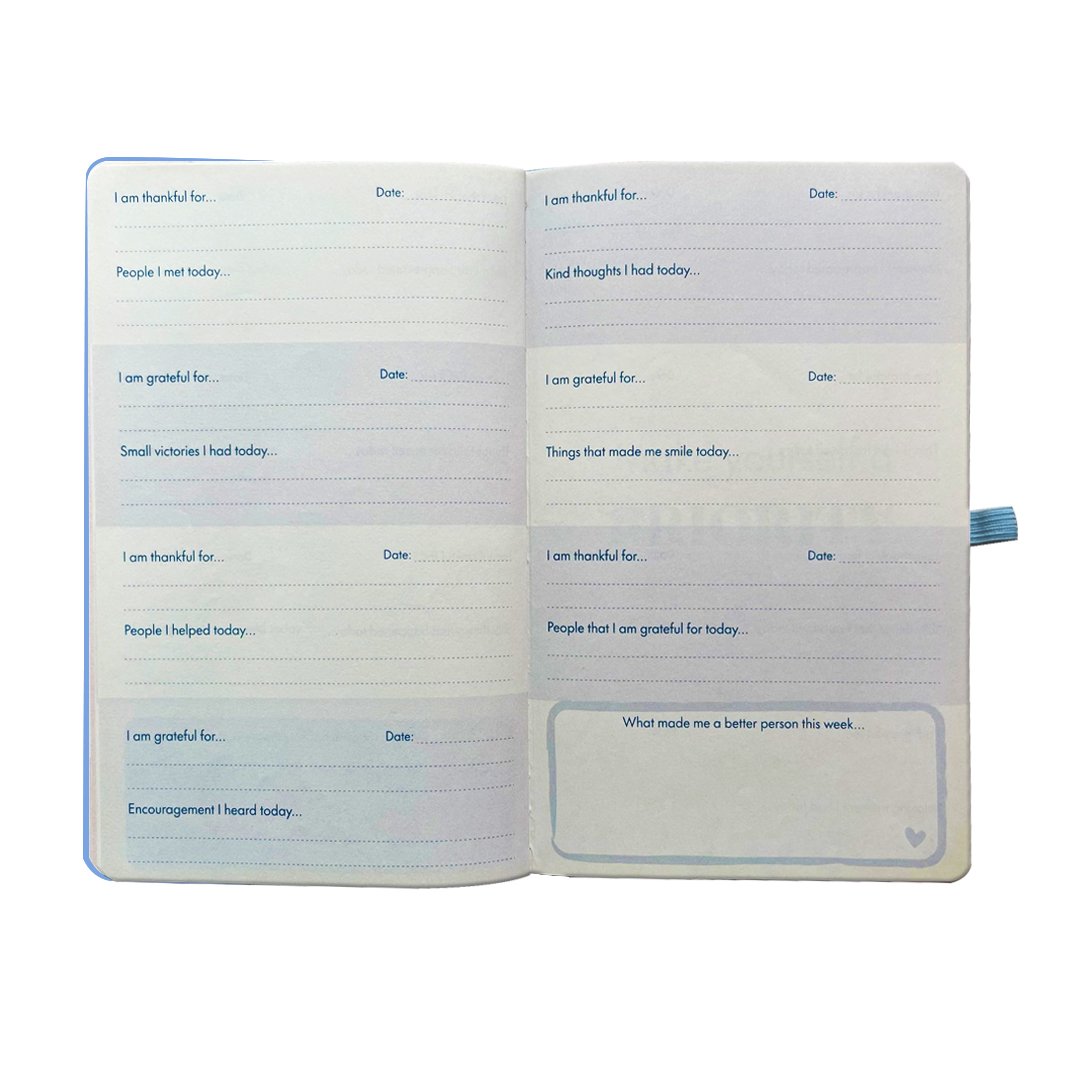 I am thankful for... Date:
People I met today...
I am grateful for... Date:
Small victories I had today...
I am thankful for... Date:
People I helped today...
I am grateful for... Date:
Encouragement I heard today...
I am thankful for... Date:
Kind thoughts I had today...
I am grateful for... Date:
Things that made me smile today...
I am thankful for... Date:
People that I am grateful for today...
What made me a better person this week...